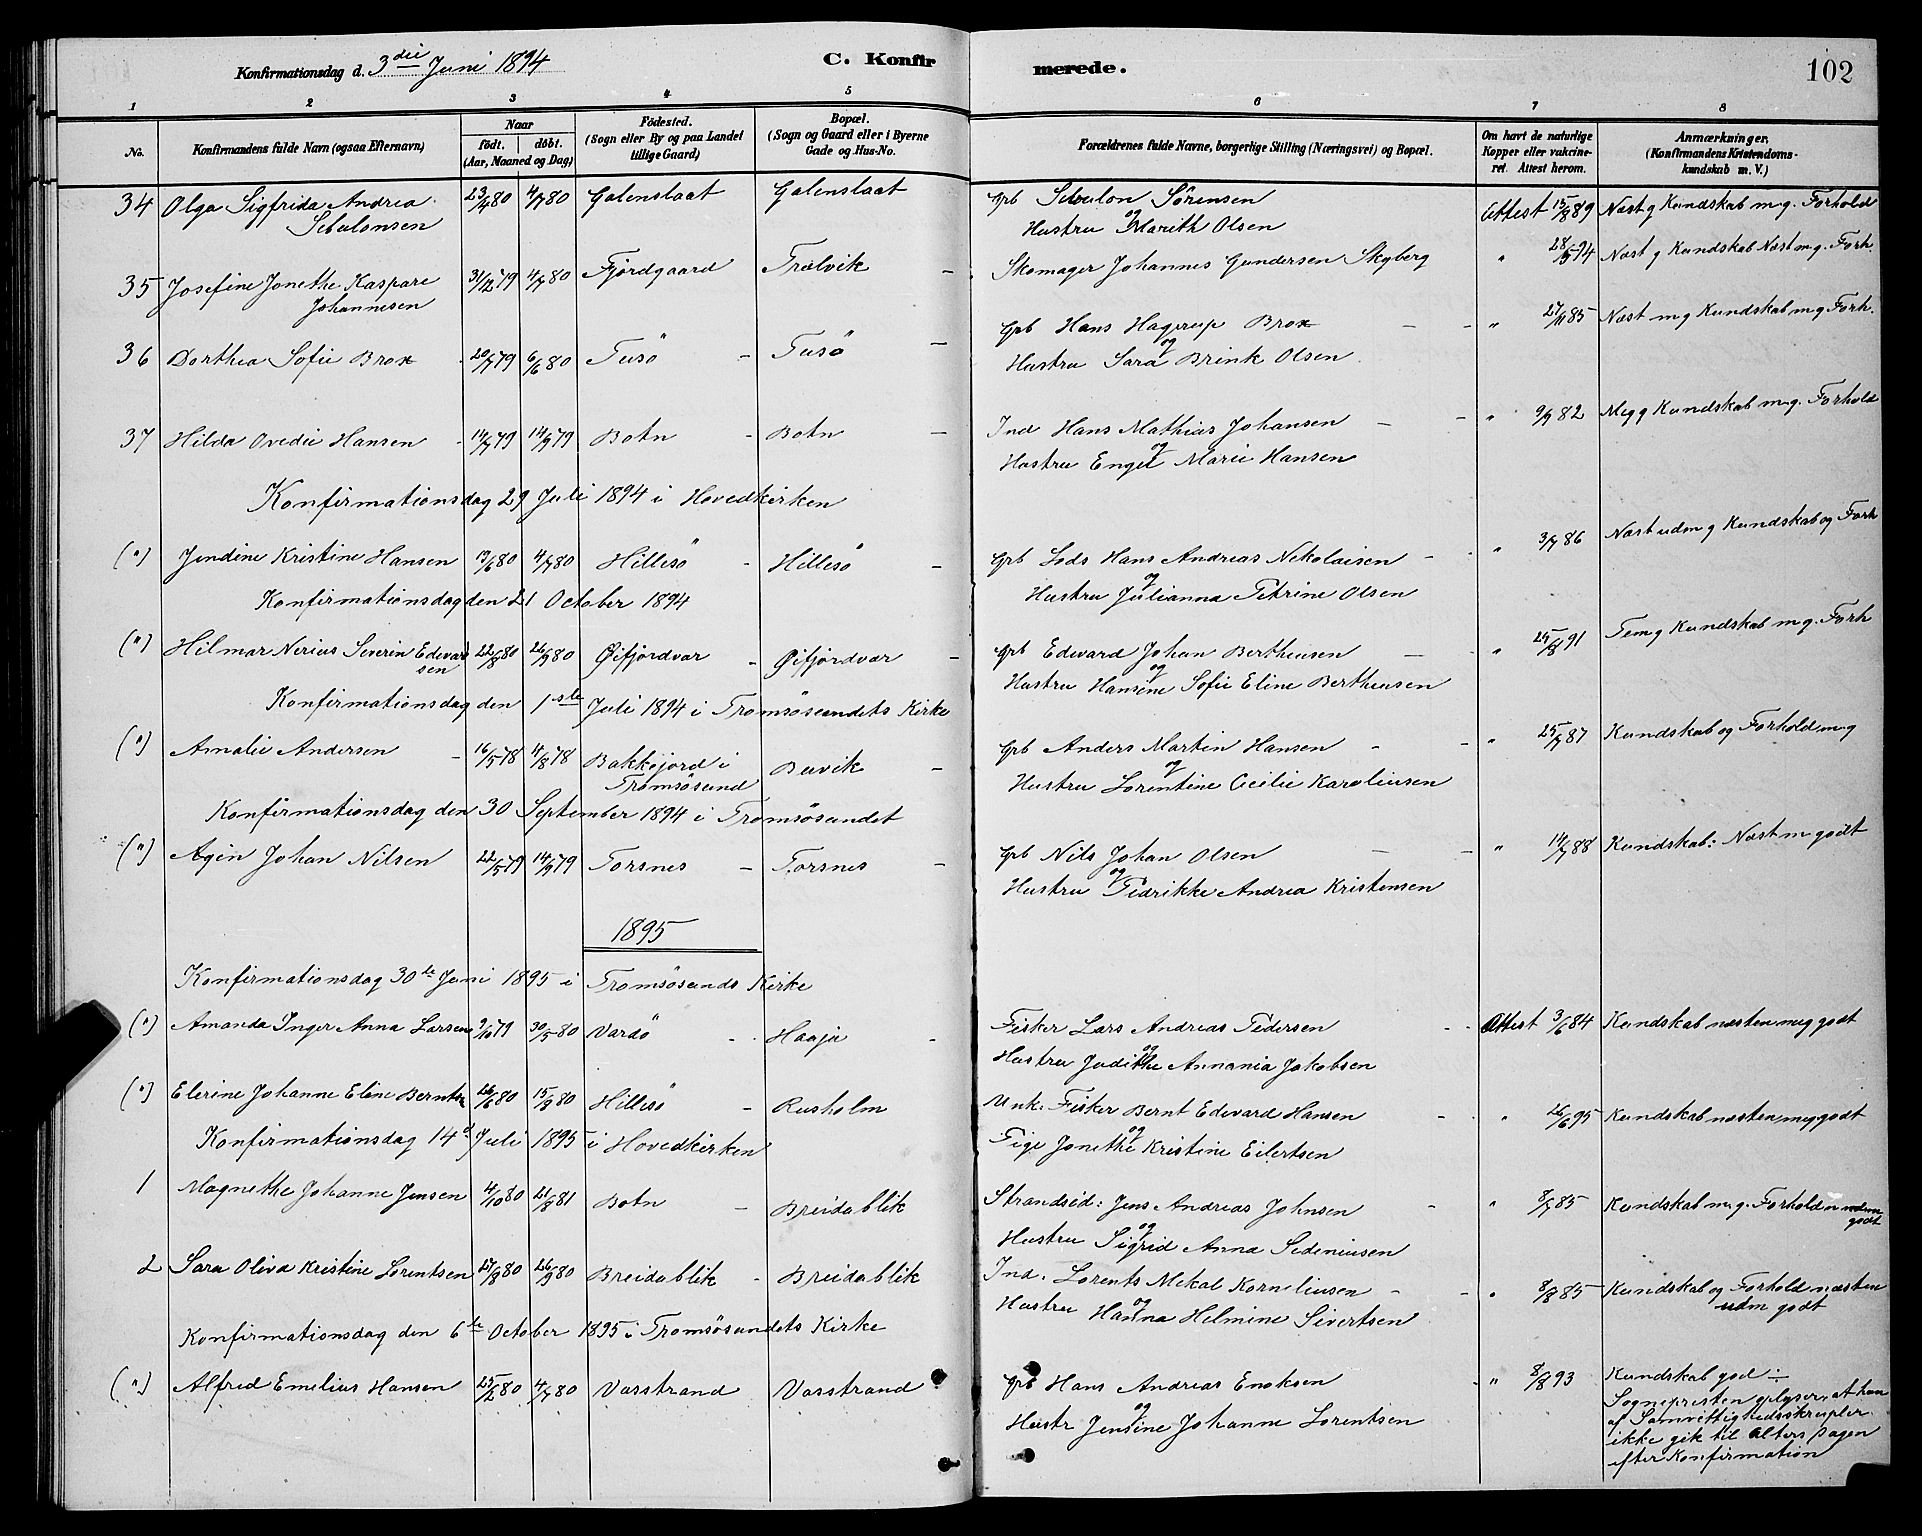 Konfirmationsdag d. 3die Juni 1894
C. Konfirmerede.
102
1 2 3 4 5 6 7 8
No.
Konfirmandens fulde Navn (ogsaa Efternavn)
Naar
födt. döbt.
(Aar, Maaned og Dag)
Födested.
(Sogn eller By og paa Landet
tillige Gaard)
Bopæl.
(Sogn og Gaard eller i Byerne
Gade og Hus-No.
Forældrenes fulde Navne, borgerlige Stilling (Næringsvei) og Bopæl.
Om havt de naturlige
Kopper eller vakcine-
ret. Attest herom.
Anmærkninger,
(Konfirmandens Kristendoms-
kundskab m. V.)
34 Olga Sigfrida Andrea 23/4 80 4/7 80 Galenslaat Galenslaat Gpb Sebulon Sörensen Attest 15/8 89 Næst g Kundskab m.g. Forhold
Sebulonsen og Hustru Marith Olsen
35 Josefine Jonethe Kaspare 31/12 79 4/7 80 Fjordgaard Trælvik Skomager Johannes Gundersen Skyberg " 28/5 94 Næst g Kundskab Næst m.g. Forh.
Johannesen
36 Dorthea Sofie Brox 20/7 79 6/6 80 Tusö Tusö Gpb Hans Hagerup Brox " 27/11 85 Næst m g Kundskab m g Forh.
og Hustru Sara Brink Olsen
37 Hilda Ovedie Hansen 14/7 79 14/9 79 Botn Botn Ind Hans Mathias Johansen " 9/9 82 Meg g Kundskab m.g. Forhold
og Hustru Engel Marie Hansen
Konfirmationsdag 29 Juli 1894 i Hovedkirken
(") Jendine Kristine Hansen 13/6 80 4/7 80 Hillesö Hillesö Gpb Lods Hans Andreas Nikolaisen " 3/7 86 Næst udm g Kundskab og Forh
og Hustru Julianna Petrine Olsen
Konfirmationsdag den 21 October 1894
(") Hilmar Nerius Severin Edevard 22/8 80 26/9 80 Øifjordvær Øifjordvær Gpb Edevard Johan Bertheusen " 25/8 91 Tem g Kundskab m.g. Forh
sen og Hustru Hansine Sofie Eline Bertheusen
Konfirmationsdag den 1ste Juli 1894 i Tromsösundets Kirke
(") Amalie Andersen 16/5 78 4/8 78 Bakkejord i Buvik Gpb Anders Martin Hansen " 25/7 87 Kundskab og Forhold m g
Tromsösund og Hustru Lorentine Cecilie Karoliusen
Konfirmationsdag den 30 September 1894 i Tromsösundet
(") Agin Johan Nilsen 22/5 79 14/9 79 Torsnes Torsnes Gpb Nils Johan Olsen " 14/7 88 Kundskab: Næst m godt
og Hustru Pedrikke Andrea Kristensen
1895
Konfirmationsdag 30te Juni 1895 i Tromsösunds Kirke
(") Amanda Inger Anna Larsen 9/10 79 30/5 80 Vardö Haaja Fisker Lars Andreas Pedersen Attest 3/6 84 Kundskab næsten meg godt
og Hustru Judithe Annania Jakobsen
(") Elerine Johanne Eline Berntsen 26/6 80 15/8 80 Hillesö Rusholm Unk. Fisker Bernt Edevard Hansen " 26/6 95 Kundskab næsten meg godt
og Pige Jonethe Kristine Eilertsen
Konfirmationsdag 14d Juli 1895 i Hovedkirken
1 Magnethe Johanne Jensen 4/10 80 21/8 81 Botn Breidablik Strandsid: Jens Andreas Johnsen " 8/7 85 Kundskab m.g. Forhold n udm
godt
og Hustru Sigrid Anna Sedeniusen
2 Sara Oliva Kristine Lorentsen 27/8 80 26/9 80 Breidablik Breidablik Ind. Lorents Mekal Korneliusen " 8/8 85 Kundskab og Forhold næsten
udm godt
og Hustru Hanna Helmine Sivertsen
Konfirmationsdag den 6te October 1895 i Tromsösundets Kirke
(") Alfred Emelius Hansen 25/2 80 4/7 80 Vasstrand Vasstrand Gpb Hans Andreas Enoksen " 8/8 93 Kundskab god ÷
og Hustr Jensine Johanne Lorentsen
Sognepresten oplyser, at han
af Samvittighedsskrupler
ikke gik til Alters Dagen
efter Konfirmation